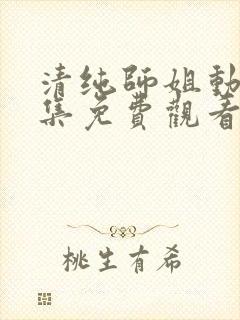 清纯師姐動
集免費觀看
桃生有希